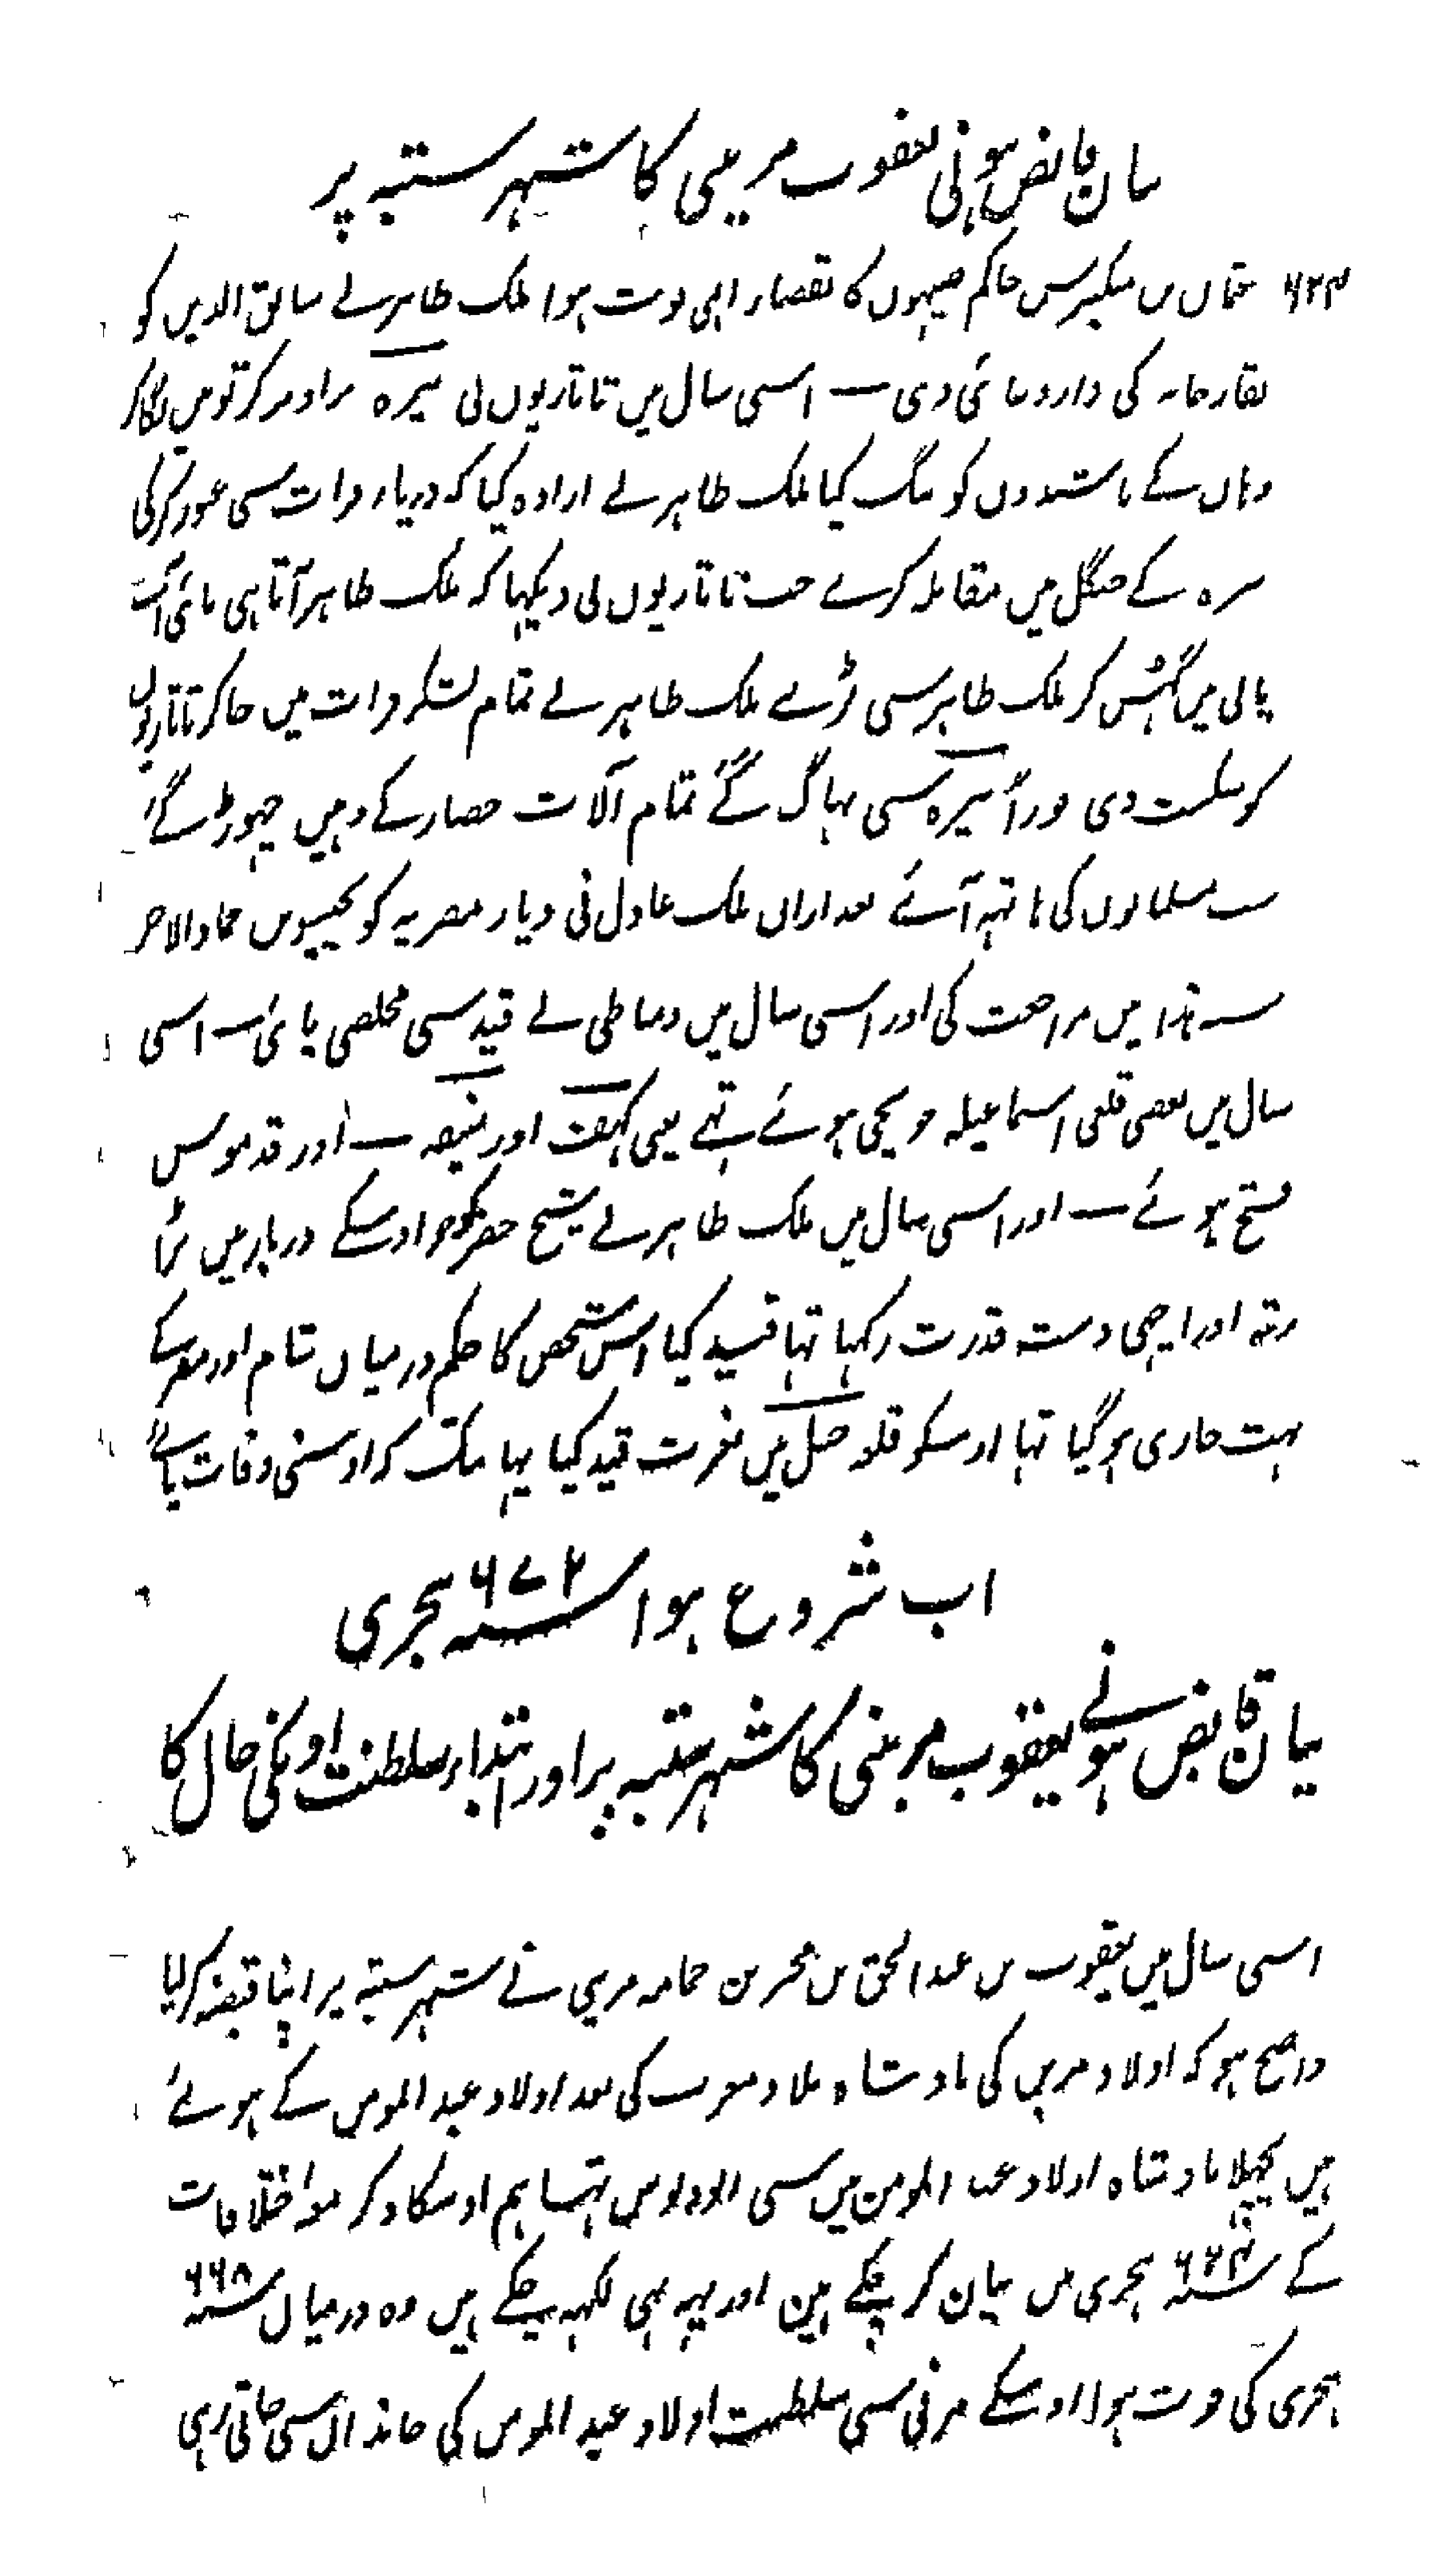 بیان قابض ہونی یعقوب مرینی کا شہر ستبہ پر
۶۲۴ عثمان بن منکبرس حاکم صیہون کا بقضاء الہی فوت ہوا ملک ظاہر نے سابق الدین کو
نقارخانہ کی داروغائی دی ــ اسی سال میں تاتاریوں نی بیرہ پر اوتر کر توپیں لگا کر
وہاں کے باشندوں کو تنگ کیا ملک ظاہر نے ارادہ کیا کہ دریاء فرات سی عبور کر کی
بیرہ کے جنگل میں مقابلہ کرے جب تاتاریوں نی دیکہا کہ ملک ظاہر آتا ہی
پانی میں گہس کر ملک ظاہر سی لڑے ملک ظاہر نے تمام لشکر فرات میں جا کر تاتاریوں
کو شکست دی فوراً بیرہ سی بہاگ گئے تمام آلات حصار کے وہیں چہوڑ گئے
سب مسلمانوں کی ہاتہہ آئے بعد ازاں ملک عادل نی دیار مصریہ کو پچیسویں جماد الاخر
سنہ ہذا میں مراجعت کی اور اسی سال میں دمیاطی نے قید سی مخلصی پائی ــ اسی
سال میں بعضی قلعی اسماعیلہ جو بچی ہوئے تہے یعی کہف اور منیقہ ــ اور قدموس
فتح ہوئے ــ اور اسی سال میں ملک ظاہر نے شیخ خضر کو جو اوسکے دربار میں بڑا
رتبہ اور اچہی دست قدرت رکہا تہا قید کیا اس شخص کا حکم درمیاں شام اور مصر کے
بہت جاری ہو گیا تہا اوسکو قلعہ جبل میں قید کیا یہاںتک کہ اوسنی وفات پائی
اب شروع ہوا سنہ ۶۷۲ ہجری
بیان قابض ہونے یعقوب مرینی کا شہر ستبہ پر اور ابتداء سلطنت اونکی حال کا
اسی سال میں یعقوب بن عبد الحق بن محیو بن حمامہ مرینی نے شہر ستبہ پر اپنا قبضہ کر لیا
واضح ہو کہ اولاد مرین کی بادشاہ بلاد مغرب کی بعد اولاد عبد المومن کے ہوئے
ہیں پچہلا بادشاہ اولاد عبد المومن میں سی ابو دبوس تہا ہم اوسکا ذکر معہ اختلافات
کے سنہ ۶۲۴ ہجری میں بیان کر چکے ہین اور یہہ بہی لکہہ چکے ہیں وہ درمیاں سنہ ۶۶۸
ہجری کی فوت ہوا اوسکے مرنی سی سلطنت اولاد عبد المومن کی خاندان سی جاتی رہی